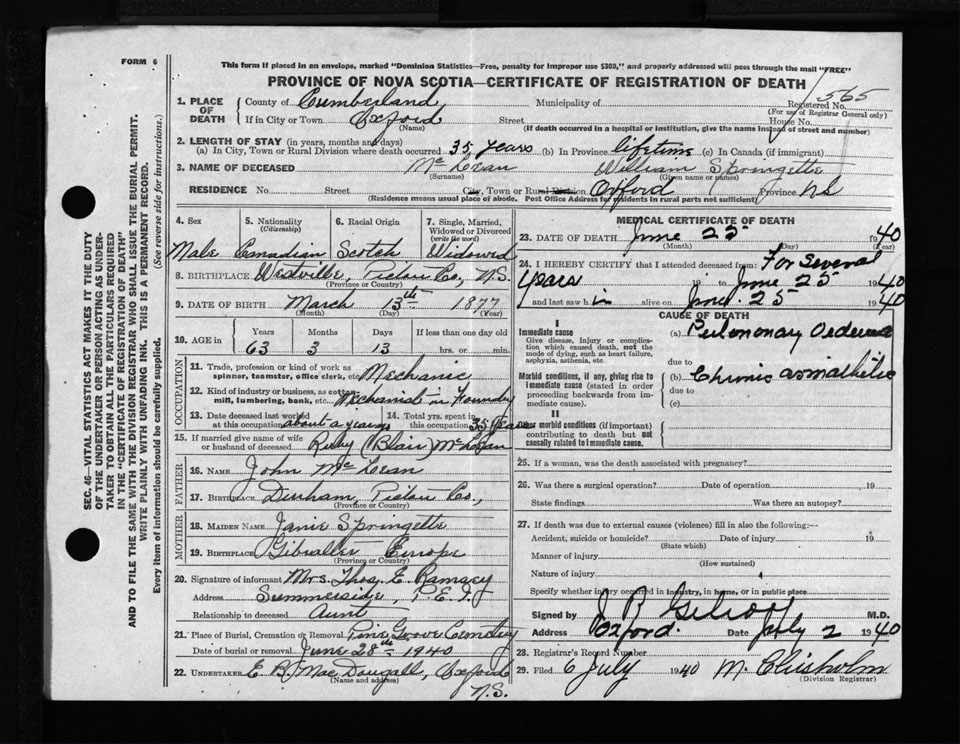 FORM 6
This form if placed in an envelope, marked "Dominion Statistics—Free, penalty for improper use $300," and properly addressed will pass through the mail "FREE"
PROVINCE OF NOVA SCOTIA—CERTIFICATE OF REGISTRATION OF DEATH
565
1. PLACE OF DEATH
County of Cumberland Municipality of Registered No.
(For use of Registrar General only)
If in City or Town Oxford Street House No.
(Name) (If death occurred in a hospital or institution, give the name instead of street and number)
2. LENGTH OF STAY (in years, months and days)
(a) In City, Town or Rural Division where death occurred 35 years (b) In Province lifetime (c) In Canada (if immigrant)
3. NAME OF DECEASED McLean William Springette
(Surname) (Given name or names)
RESIDENCE No. Street City, Town or Rural Division Oxford Province N.S.
(Residence means usual place of abode. Post Office Address for residents in rural parts not sufficient)
4. Sex
Male
5. Nationality
(Citizenship)
Canadian
6. Racial Origin
Scotch
7. Single, Married, Widowed or Divorced
(write the word)
Widowed
8. BIRTHPLACE Westville, Pictou Co, N.S.
(Province or Country)
9. DATE OF BIRTH March 13th 1877
(Month) (Day) (Year)
10. AGE in
Years Months Days If less than one day old
63 3 13 hrs. or min.
OCCUPATION
11. Trade, profession or kind of work as spinner, teamster, office clerk, etc. Mechanic
12. Kind of industry or business, as cotton mill, lumbering, bank, etc. Mechanist in Foundry
13. Date deceased last worked at this occupation about a year
14. Total yrs. spent in this occupation 35 years
15. If married give name of wife or husband of deceased Ruby (Blair) McLean
FATHER
16. NAME John McLean
17. BIRTHPLACE Durham, Pictou Co.,
MOTHER
18. MAIDEN NAME Janie Springette
19. BIRTHPLACE Gibralter Europe
(Province or Country)
20. Signature of informant Mrs. Thos. E. Ramsey
Address Summerside, P.E.I.
Relationship to deceased Aunt
21. Place of Burial, Cremation or Removal Pine Grove Cemetery
Date of burial or removal June 28th 1940
22. UNDERTAKER E. B. MacDougall, Oxford
(Name and address)
N.S.
MEDICAL CERTIFICATE OF DEATH
23. DATE OF DEATH June 25 1940
(Month) (Day) (Year)
24. I HEREBY CERTIFY that I attended deceased from: For several
years 19 to June 25 1940
and last saw him alive on June 25 1940
CAUSE OF DEATH
I
Immediate cause
Give disease, injury or complication which caused death, not the mode of dying, such as heart failure, asphyxia, asthenia, etc.
(a) Pulmonary Oedema
due to
Morbid conditions, if any, giving rise to immediate cause (stated in order proceeding backwards from immediate cause).
(b) Chronic
due to
(c)
II
Other morbid conditions (if important) contributing to death but not causally related to immediate cause.
25. If a woman, was the death associated with pregnancy?
26. Was there a surgical operation? Date of operation 19
State findings Was there an autopsy?
27. If death was due to external causes (violence) fill in also the following:—
Accident, suicide or homicide? Date of injury 19
(State which)
Manner of injury
(How sustained)
Nature of injury
Specify whether injury occurred in industry, in home, or in public place
Signed by M.D.
Address Oxford. Date July 2 1940
28. Registrar's Record Number
29. Filed 6 July 1940 M. Chisholm
(Division Registrar)
SEC. 46—VITAL STATISTICS ACT MAKES IT THE DUTY
OF THE UNDERTAKER OR PERSON ACTING AS UNDERTAKER
TO OBTAIN ALL THE PARTICULARS REQUIRED
IN THE "CERTIFICATE OF REGISTRATION OF DEATH"
AND TO FILE THE SAME WITH THE DIVISION REGISTRAR WHO SHALL ISSUE THE BURIAL PERMIT.
WRITE PLAINLY WITH UNFADING INK. THIS IS A PERMANENT RECORD.
Every item of information should be carefully supplied. (See reverse side for instructions.)